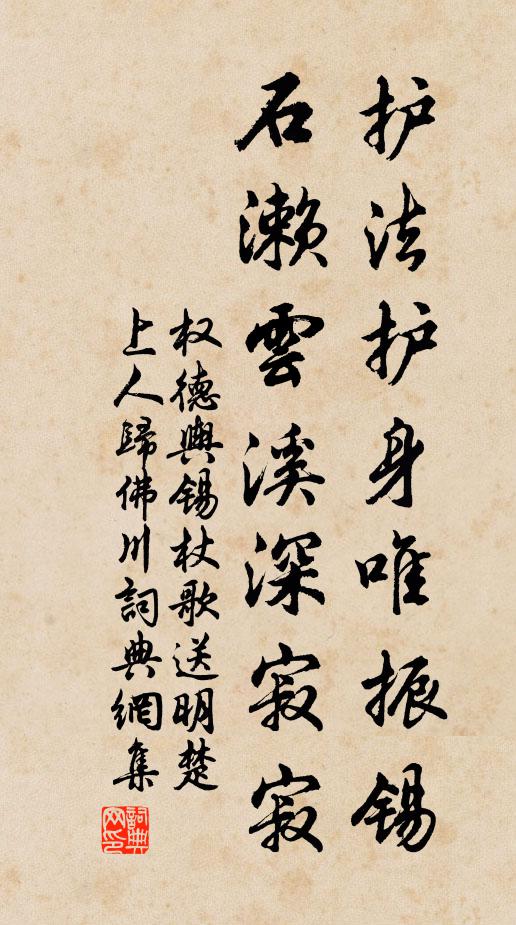 护法护身唯振锡
石濑雲溪深寂寂
权德興锡杖歌送明楚
上人歸佛川詞典網集
詞典网印